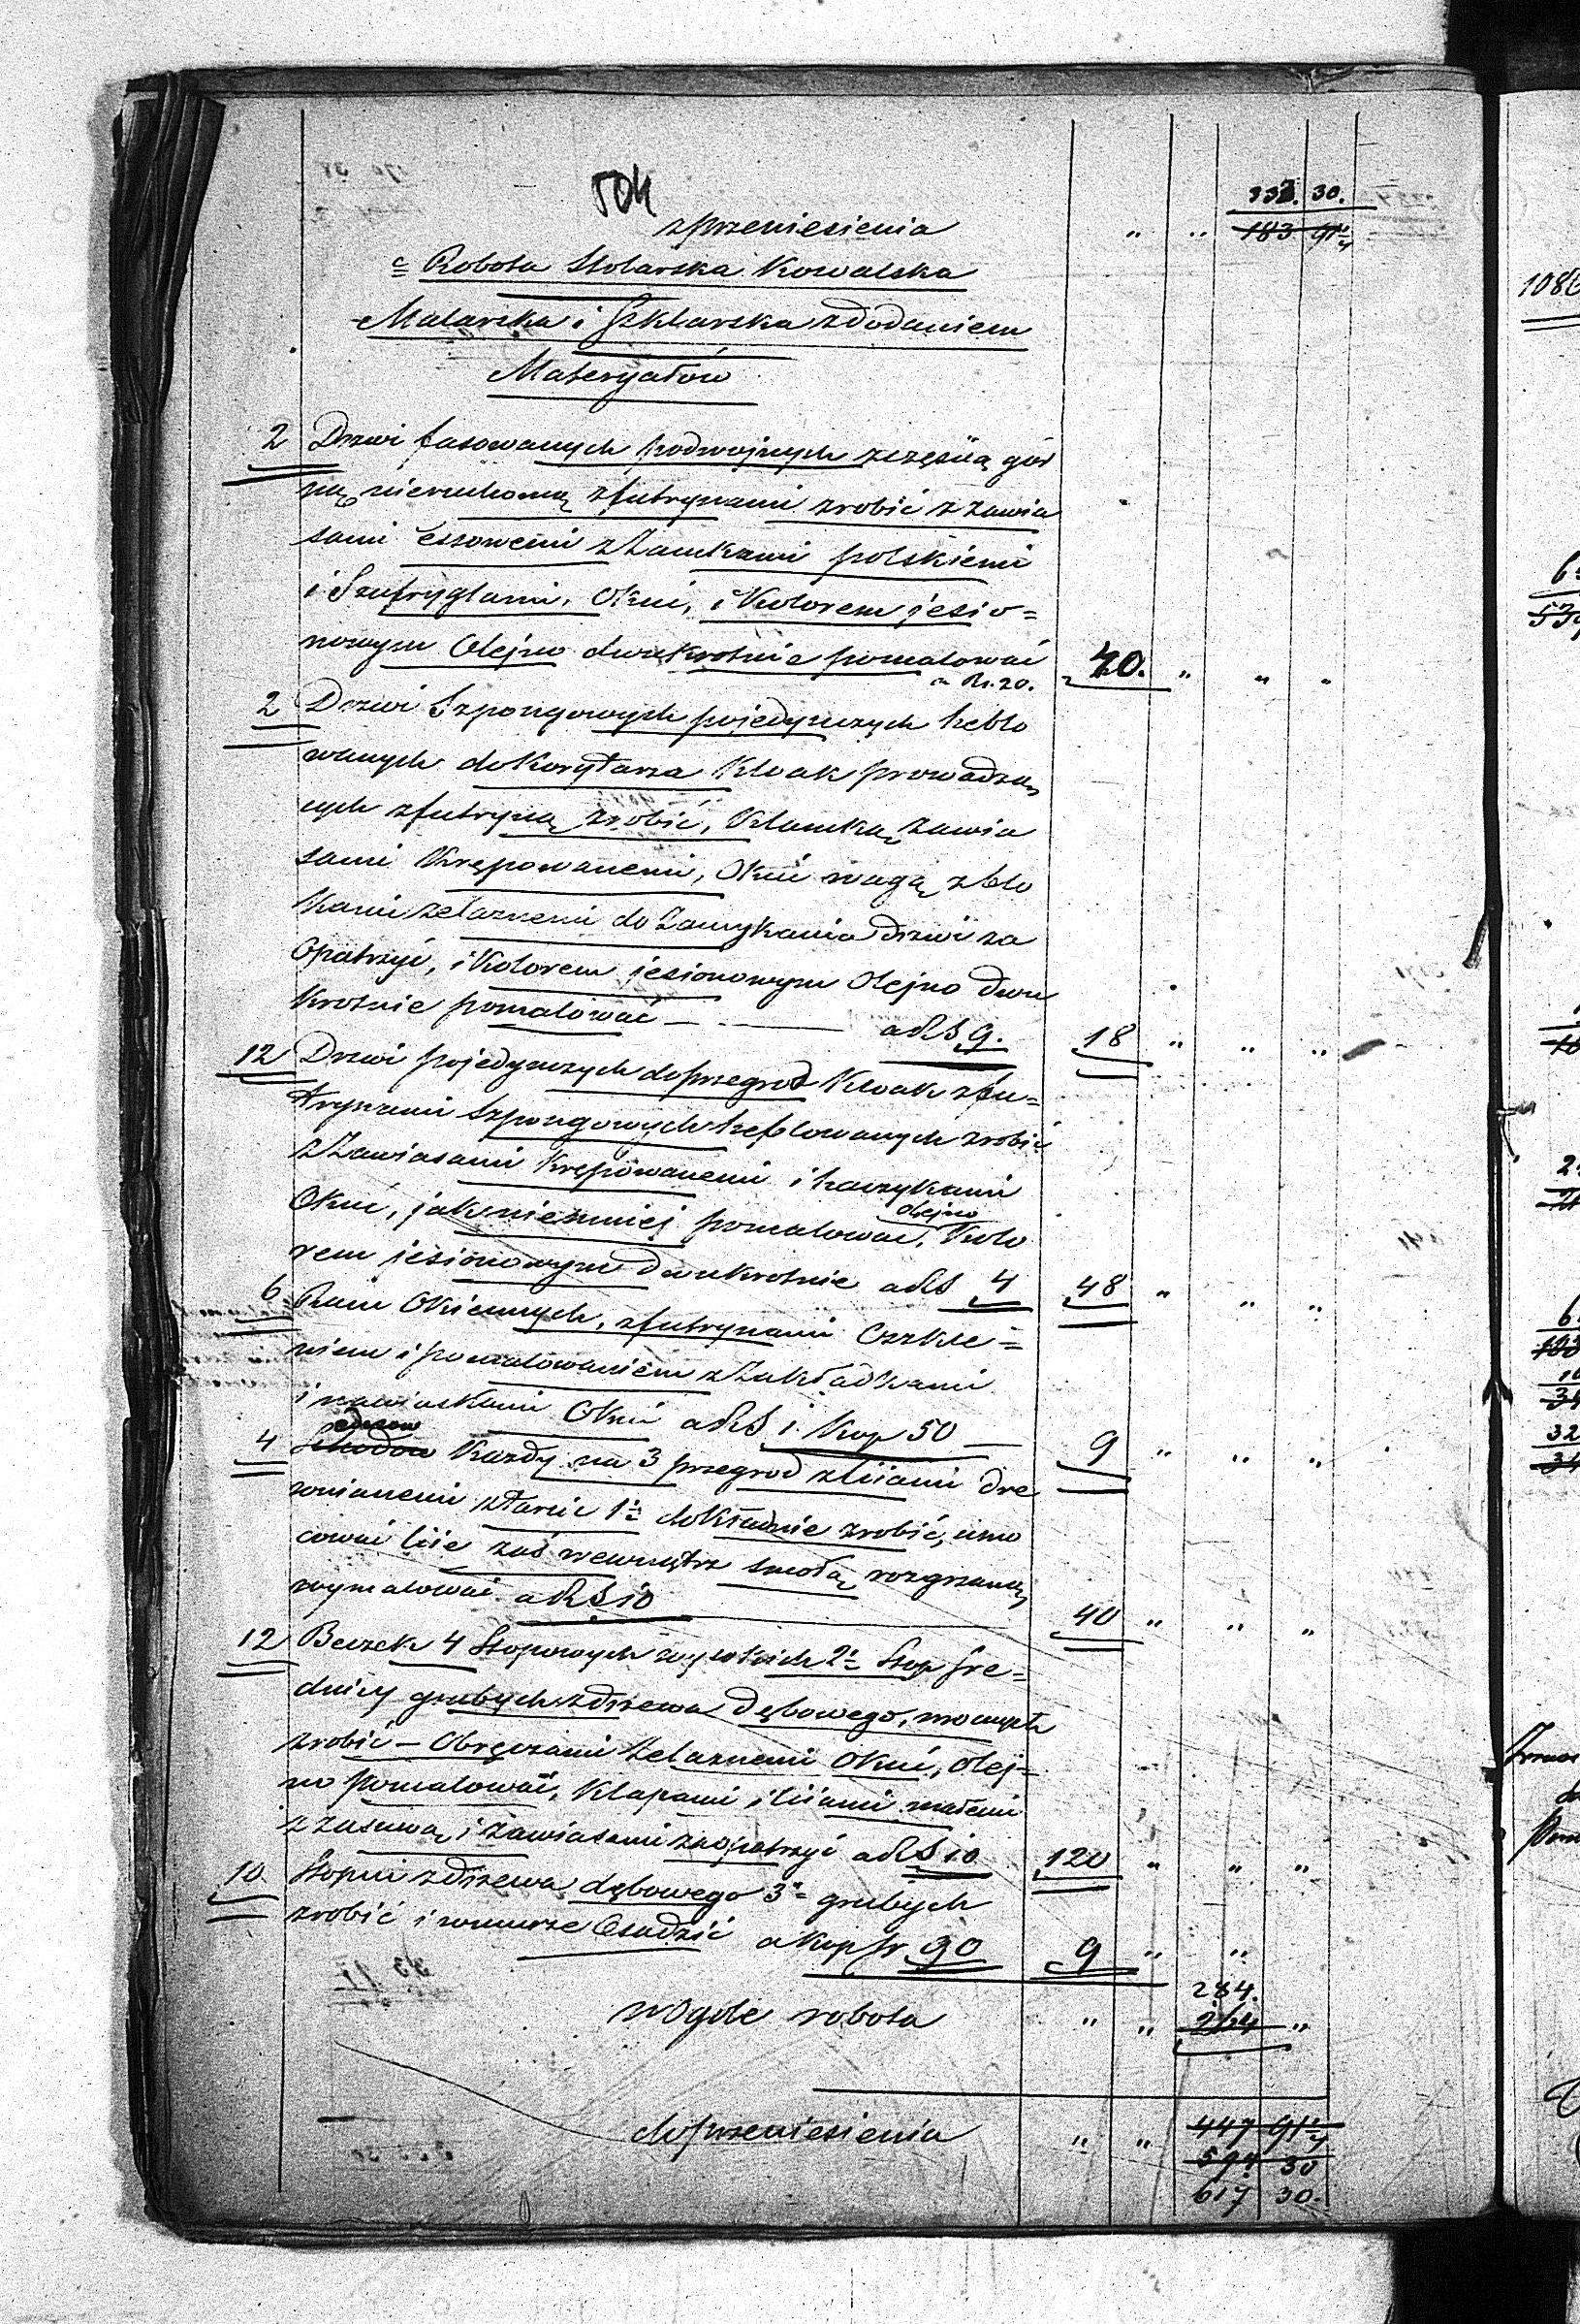 504
333. 30.
z przeniesienia " " 183 91 1/4
c Robota Stolarska Kowalska
Malarska i Szklarska z dodaniem
Materyałów
2 Drzwi fasowanych podwojnych z częścią gór
ną nieruchomą z futrynami zrobić z zawia
sami essowemi z Zamkami polskiemi
i Szufryglami, Okuć, i Kolorem jesio=
nowym Olejno dwukrotnie pomalować
a Rs. 20. 40. " " "
2 Drzwi Szpongowych pojedynczych heblo
wanych do Korytarza Kloak prowadzą
cych z futryną zrobić, Klamką zawia
sami Krępowanemi, Okuć wagą z blo
kami żelaznemi do Zamykania drzwi za
opatrzyć, i Kolorem jesionowym Olejno dwu
krotnie pomalować — a RS 9. 18 " " "
12 Drzwi pojedynczych do przegrod Kloak z fu=
trynami Szpongowych heblowanych zrobić
z Zawiasami Krępowanemi i haczykami
Okuć, jak niemniej pomalować olejno Kolo
rem jesionowym dwukrotnie a RS 4 48 " " "
6 Ram Okiennych, z futrynami Oszkle=
niem i pomalowaniem z Zakładkami
i zawiaskami Okuć a RS 1 Kop 50 — 9 " " "
4 Każdy na 3 przegrod z liiami dre
wnianemi z tarcic 1½ dokładnie zrobić, umo
cować liie zaś wewnątrz smołą rozgrzaną
wymalować a RS 10 40 " " "
12 Beczek 4 Stopowych wysokich 2½ Stop śre=
dnicy grubych z drzewa dębowego, mocnych
zrobić — Obręczami żelaznemi Okuć, Olej=
no pomalować, Klapami i liiami małemi
z zasuwą i zawiasami zaopatrzyć a RS 10 120 " " "
10 Stopni z drzewa dębowego 3" grubych
zrobić i w murze Osadzić a Kop sr 90 9 " "
284.
w Ogole robota " " 264 "
do przeniesienia " " 447 91 1/4
594 30
617 30.